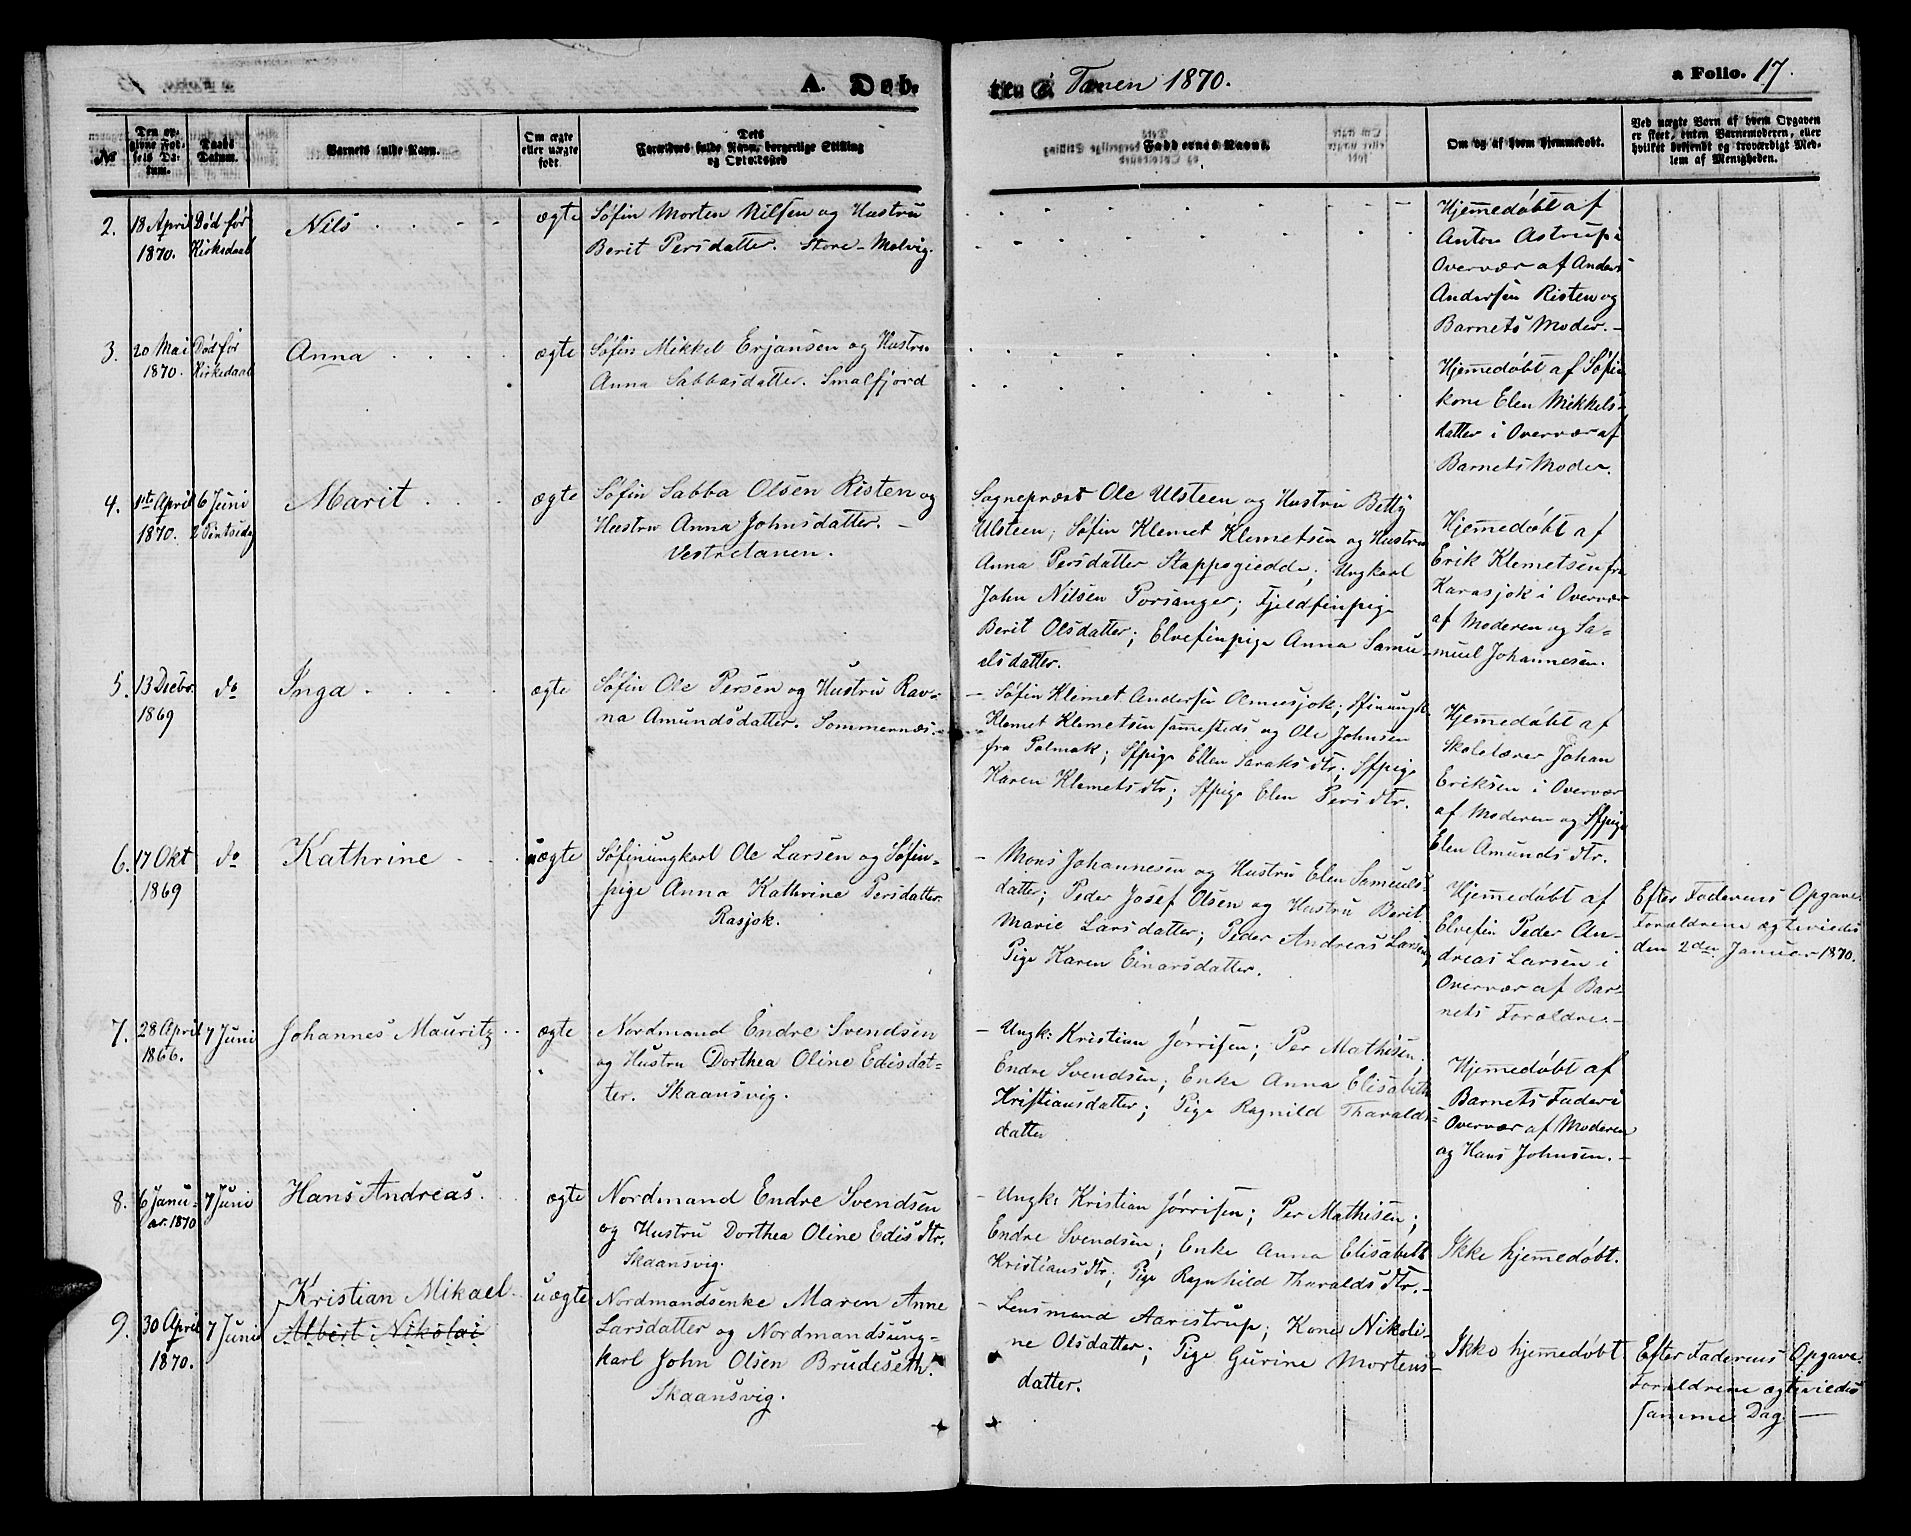 A. Døb.
te i Tanen 1870.
a Folio. 17.
No
Den opgivne Fødsels Datum.
Daabs Datum.
Barnets fulde Navn.
Om ægte eller uægte født.
Dets Forældres fulde Navn, borgerlige Stilling og Opholdssted
Faddernes Navne.
Om og af hvem hjemmedøbt.
Ved uægte Børn af hvem Opgaven er skeet, enten Barnemoderen, eller hvilket bekjendt og troværdigt Medlem af Menigheden.
2. 18 April 1870. Død før Kirkedaab
Nils
ægte
Søfin Morten Nilsen og Hustru
Berit Persdatter. Store-Molvig.
Hjemmedøbt af
Anton Astrup i
Overvær af Anders
Andersen Risten og
Barnets Moder.
3. 20 Mai 1870. Død før Kirkedaab
Anna
ægte
Søfin Mikkel Erjansen og Hustru
Anna Sabbasdatter. Smalfjord
Hjemmedøbt af Søfin
kone Elen Mikkels-
datter i Overvær af
Barnets Moder.
4. 1ste April 1870. 6 Juni 2 Pintsedag
Marit
ægte
Søfin Sabba Olsen Risten og
Hustru Anna Johnsdatter. –
Vestretanen.
Sognepræst Ole Ulsteen og Hustru Betty
Ulsteen; Søfin Klemet Klemetsen og Hustru
Anna Persdatter Stappogiedde; Ungkarl
John Nilsen Porsanger; Fjeldfinpige
Berit Olsdatter; Elvefinpige Anna Samu-
elsdatter.
Hjemmedøbt af
Erik Klemetsen fra
Karasjok i Overvær
af Moderen og Sa-
muel Johannesen.
5. 13 Decbr. 1869 do
Inga
ægte
Søfin Ole Persen og Hustru Rav-
na Amundsdatter. Sommernæs.
– Søfin Klemet Andersen
Klemet Klemetsen sammesteds og Ole Johnsen
fra Polmak; Sfpige Ellen Saraksdtr; Sfpige
Karen Klemetsdtr; Sfpige Elen Persdtr.
Hjemmedøbt af
Skolelærer Johan
Eriksen i Overvær
af Moderen og Sfpige
Elen Amundsdtr.
6. 17 Okt 1869 do
Kathrine
uægte
Søfinungkarl Ole Larsen og Søfin-
pige Anna Kathrine Persdatter
Rasjok.
– Mons Johannesen og Hustru Elen Samuels-
datter; Peder Josef Olsen og Hustru Berit
Marie Larsdatter; Peder Andreas Larsen;
Pige Karen Einarsdatter.
Hjemmedøbt af
Elvefin Peder An-
dreas Larsen i
Overvær af Bar-
nets Forældre.–
Efter Faderens Opgave.
Forældrene ægteviedes
den 2den Januar 1870.
7. 28 April 1866. 7 Juni
Johannes Mauritz
ægte
Nordmand Endre Svendsen
og Hustru Dorthea Oline Edisdat-
ter. Skaansvig.
– Ungk: Kristian Jørrisen; Per Mathisen;
Endre Svendsen; Enke Anna Elisabeth
Kristiansdatter; Pige Ragnild Tharalds-
datter
Hjemmedøbt af
Barnets Fader i
Overvær af Moderen
og Hans Johnsen.–
8. 6 Janu- ar. 1870 7 Juni
Hans Andreas.
ægte
Nordmand Endre Svendsen
og Hustru Dorthea Oline Edisdtr.
Skaansvig.
– Ungk: Kristian Jørrisen; Per Mathisen;
Endre Svendsen; Enke Anna Elisabeth
Kristiansdtr; Pige Ragnhild Tharaldsdtr.–
Ikke hjemmedøbt.
9. 30 April 1870. 7 Juni
Kristian Mikael
Albert Nikolai
uægte
Nordmandsenke Maren Anne
Larsdatter og Nordmandsung-
karl John Olsen Brudeseth.
Skaansvig.
– Lensmand Aaristrup; Kone Nikoli-
ne Olsdatter; Pige Gurine Mortens-
datter.
Ikke hjemmedøbt
Efter Faderens Opgave.
Forældrene ægteviedes
samme Dag. –